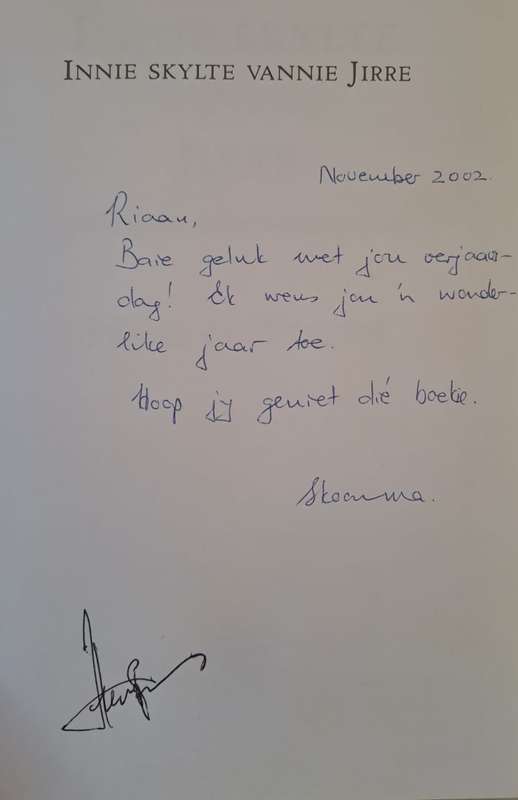 INNIE SKYLTE VANNIE JIRRE
November 2002.
Riaan,
Baie geluk met jou verjaar-
dag! Ek wens jou 'n wonder-
like jaar toe.
Hoop jy geniet dié boekie.
Skoonma.